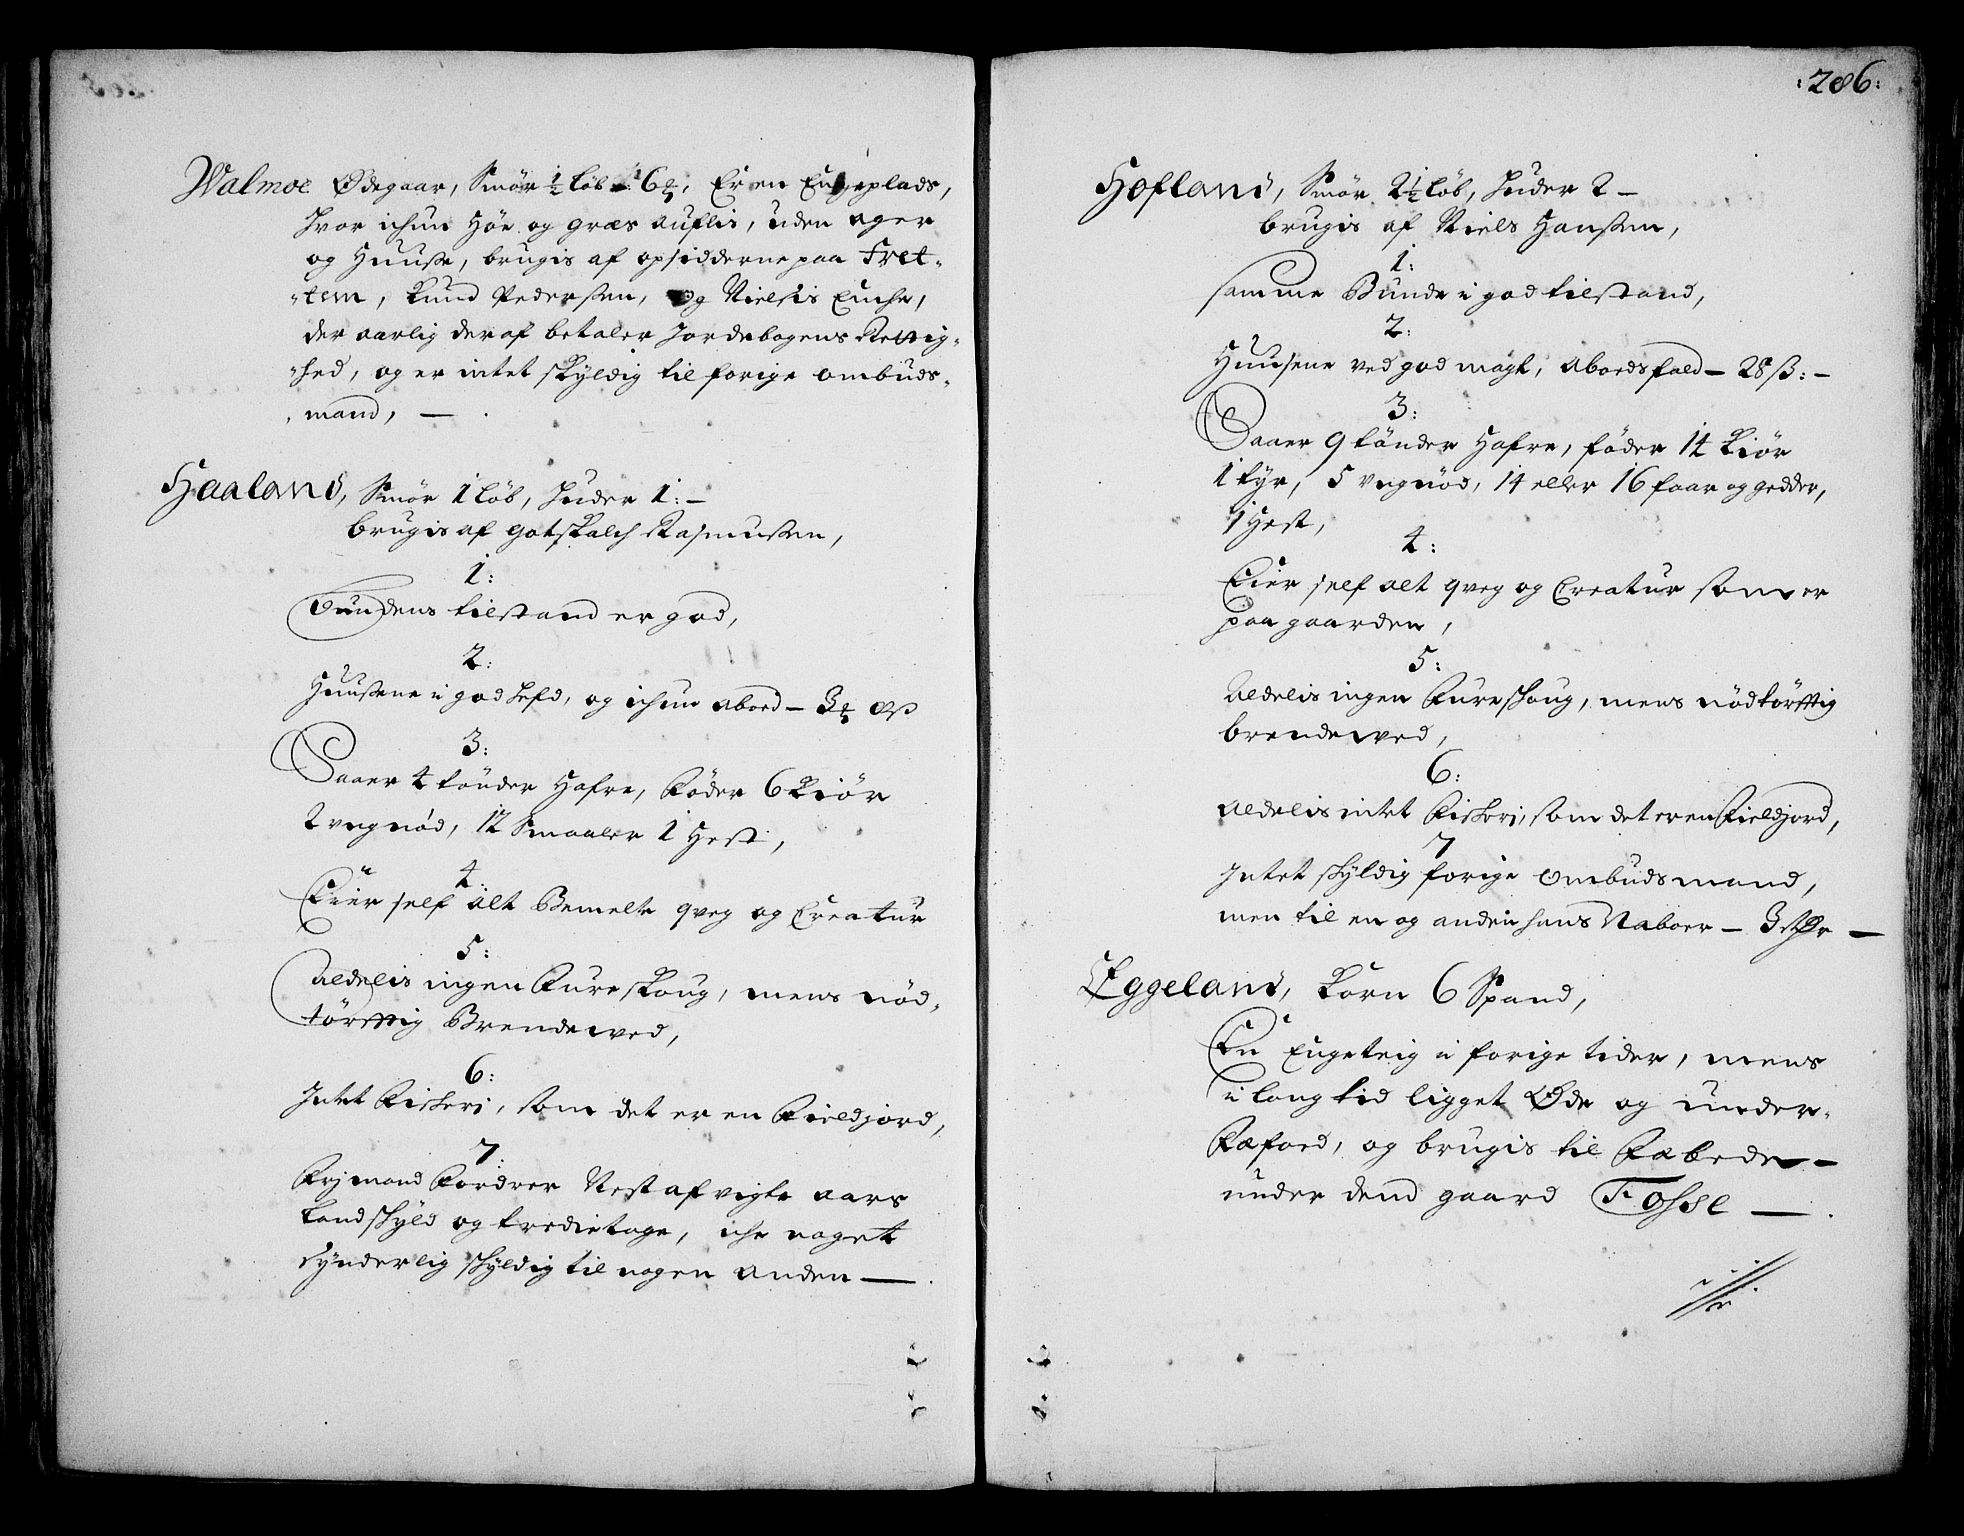 Walmoe Ødegaar, Smör ½ Löb 6 ℔, Er en Engeplads,
hvor ichun Höe og græs aufles, uden ager
og Huuse, brugis af opsidderne paa Fret-
-tem, Knud Pedersen, og Nielsis Enche,
der aarlig deraf betaler Jordebogens Rettig-
-hed, og er intet skyldig til forige ombuds-
mand, —
Haaland, Smör 1 Löb, Huder 1: -
brugis af Gotskalch Rasmussen,
1:
Bundens tilstand er god,
2:
Huusene i god hefd, og ichun Abord —
3:
Saaer 4 tönder Hafre, Föder 6 Kiör
2 ungnöd, 12 Smaaler 1 Hest,
4:
Eier self alt Bemelte qveg og Creatur
5:
Aldelis ingen Fureskoug, mens nöd-
törfftig Brendeved,
6:
Intet Fiskeri, som det er en Fieldjord,
7:
Frijmand Fordrer Rest af vigte aars
Landskyld og tredietage, iche noget
synderlig skyldig til nogen Anden —
:286:
Hofland, Smör 2½ Löb, Huder 2 —
brugis af Niels Hanssen,
1:
samme Bunde i god tilstand,
2:
Huusene ved god magt, Abordsfald — 28 ß: —
3:
Saaer 9 tönder Hafre, föder 14 Kiör
1 tyr, 5 ungnöd, 14 eller 16 faar og gedder,
1 Hest,
4:
Eier self alt qveg og Creatur som er
paa gaarden,
5:
Aldelis ingen Fureskoug, mens nödtörfftig
brendeved,
6:
Aldelis intet Fiskeri, som det er en Fieldjord,
7
Intet skyldig forige ombudsmand,
men til en og anden hans Naboer — 3 rdlr —
Eggeland, Korn 6 Spand,
En Engeteig i forige tider, mens
i lang tid ligget Øde og under
Fæfoed, og brugis til Fæbede —
under dend gaard Fosse —